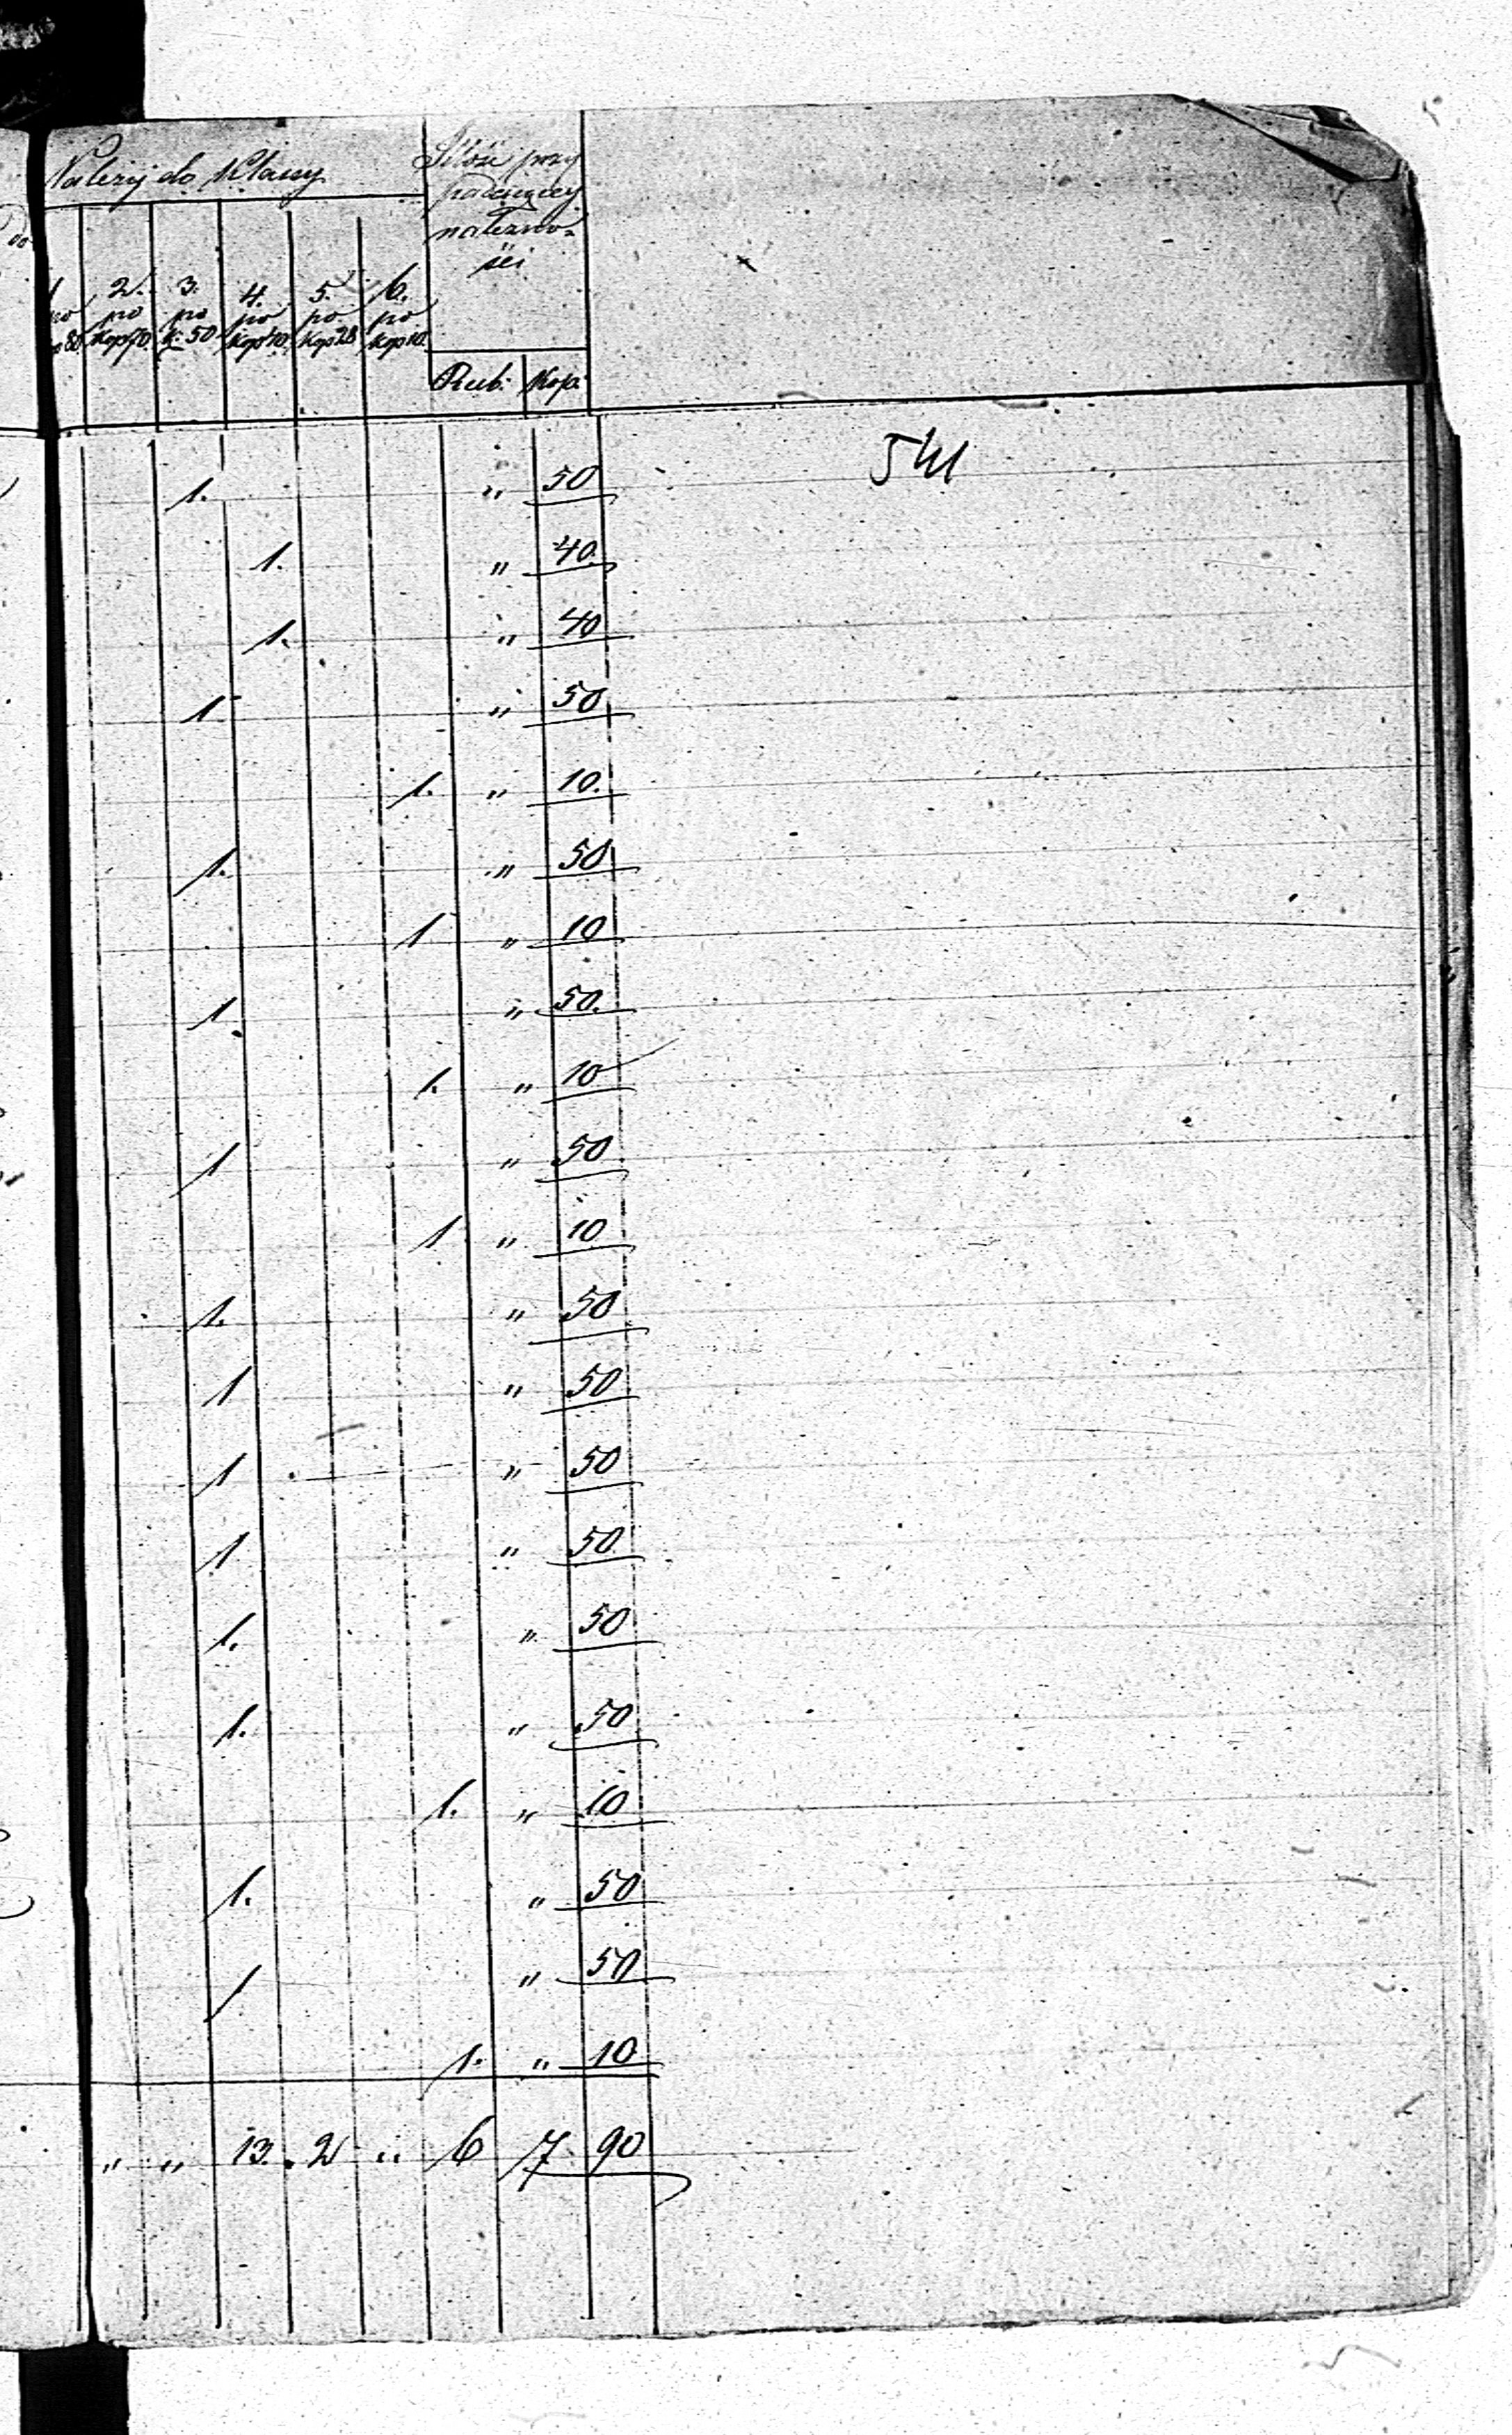 Należy do Klassy
Ilość przy
padającey
należno-
ści
2. 3. 4. 5. 6.
po po po po po po
Kop 70. k. 50 Kop 40. Kop 28 Kop 10.
Rub: Kop:
541
1. " 50
1. " 40.
1. " 40
1 " 50
1. " 10.
1. " 50
1 " 10
1. " 50.
1. " 10
1 " 50
1 " 10
1. " 50
1 " 50
1 " 50
1 " 50
1. " 50
1. " 50
1. " 10
1. " 50
1 " 50
1. " 10
" " 13. 2 " 6 7. 90